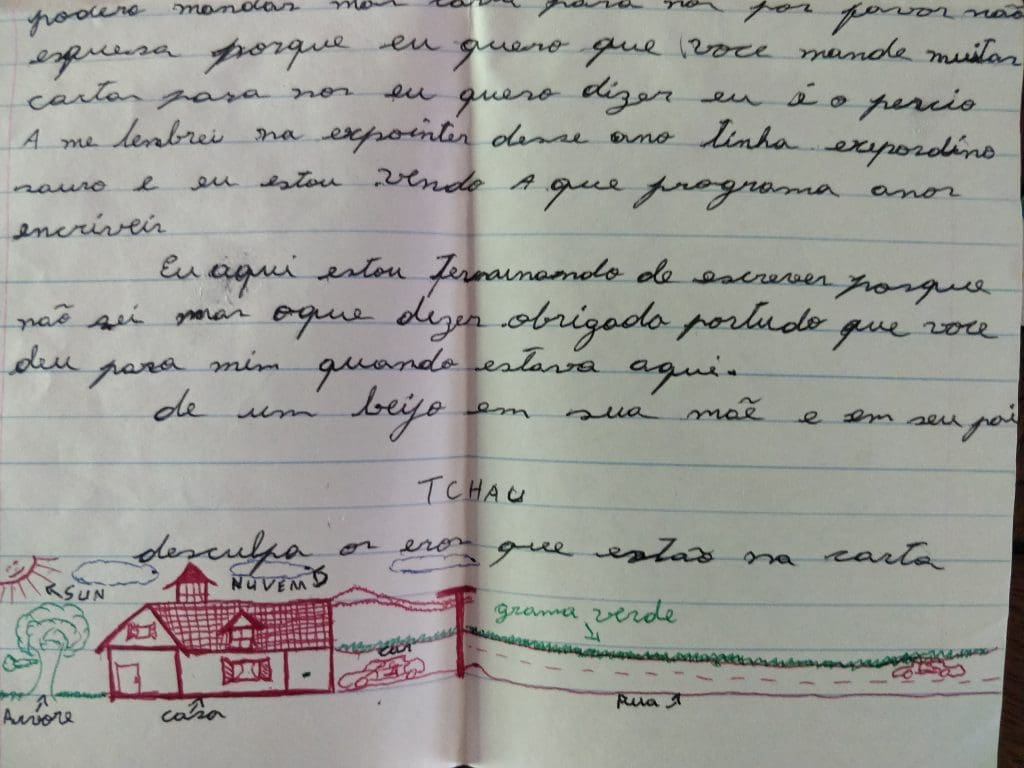 podero mandar mas carta para nos por favor não
esquesa porque eu quero que voce mande muitas
cartas para nos eu quero dizer eu é o percio
A me lembrei na expointer desse ano tinha exepordino
sauro e eu estou vendo A que programa anos
encriveis
Eu aqui estou terminando de escrever porque
não sei mas oque dizer obrigado portudo que voce
deu para mim quando estava aqui.
de um beijo em sua mãe e em seu pai
TCHAU
desculpa os eros que estão na carta
SUN
NUVEM
grama verde
car
Arvore
casa
Rua